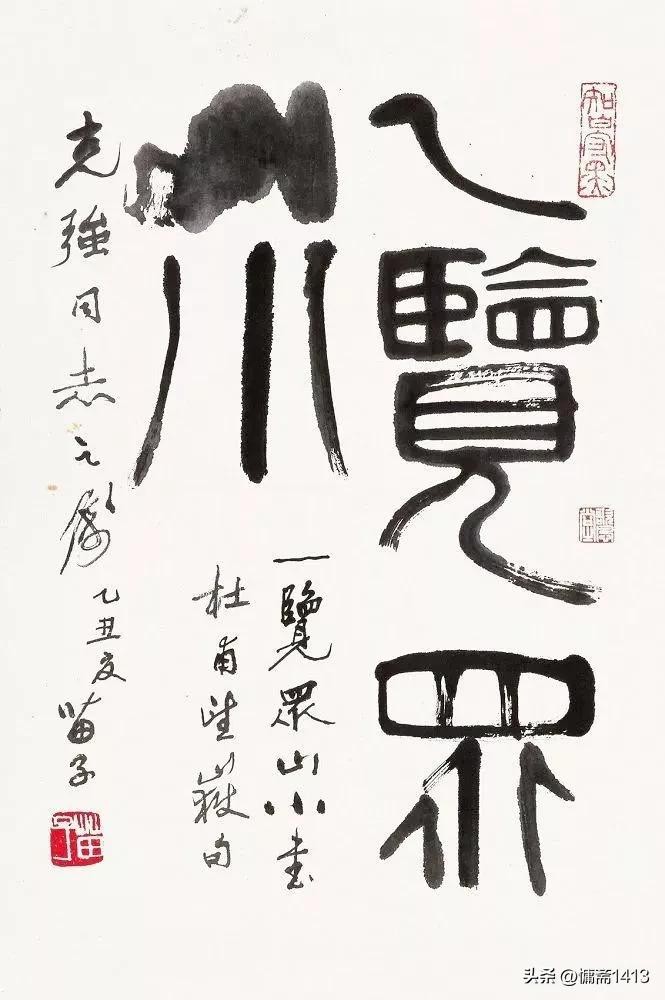 一覽眾
山小
一覽眾山小書
杜甫望嶽句
克強同志之屬乙丑夏苗子
知白守黑
苗子
头条 @慵斋1413